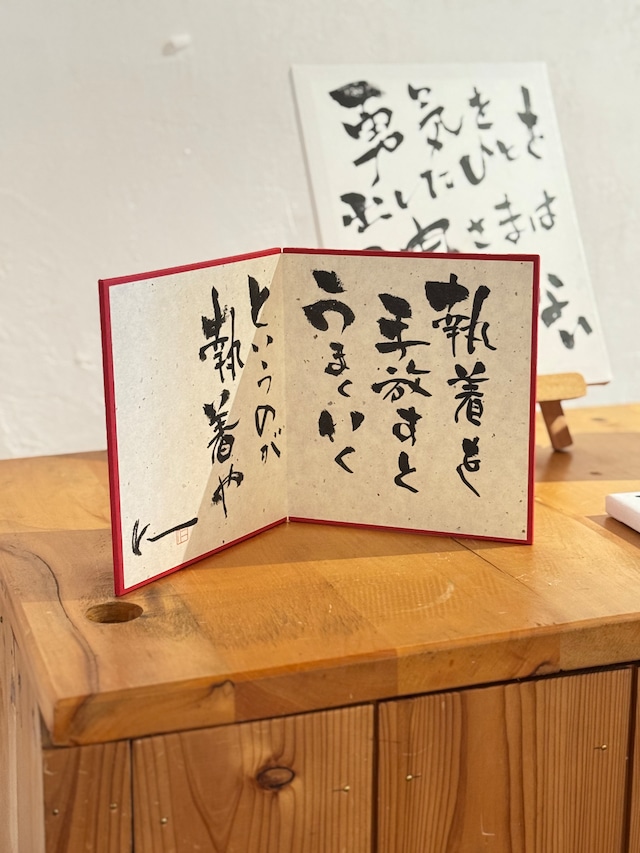 執着も
手放すと
うまくいく
というのが
執着や
勇気を
出したひと
さまは
ない